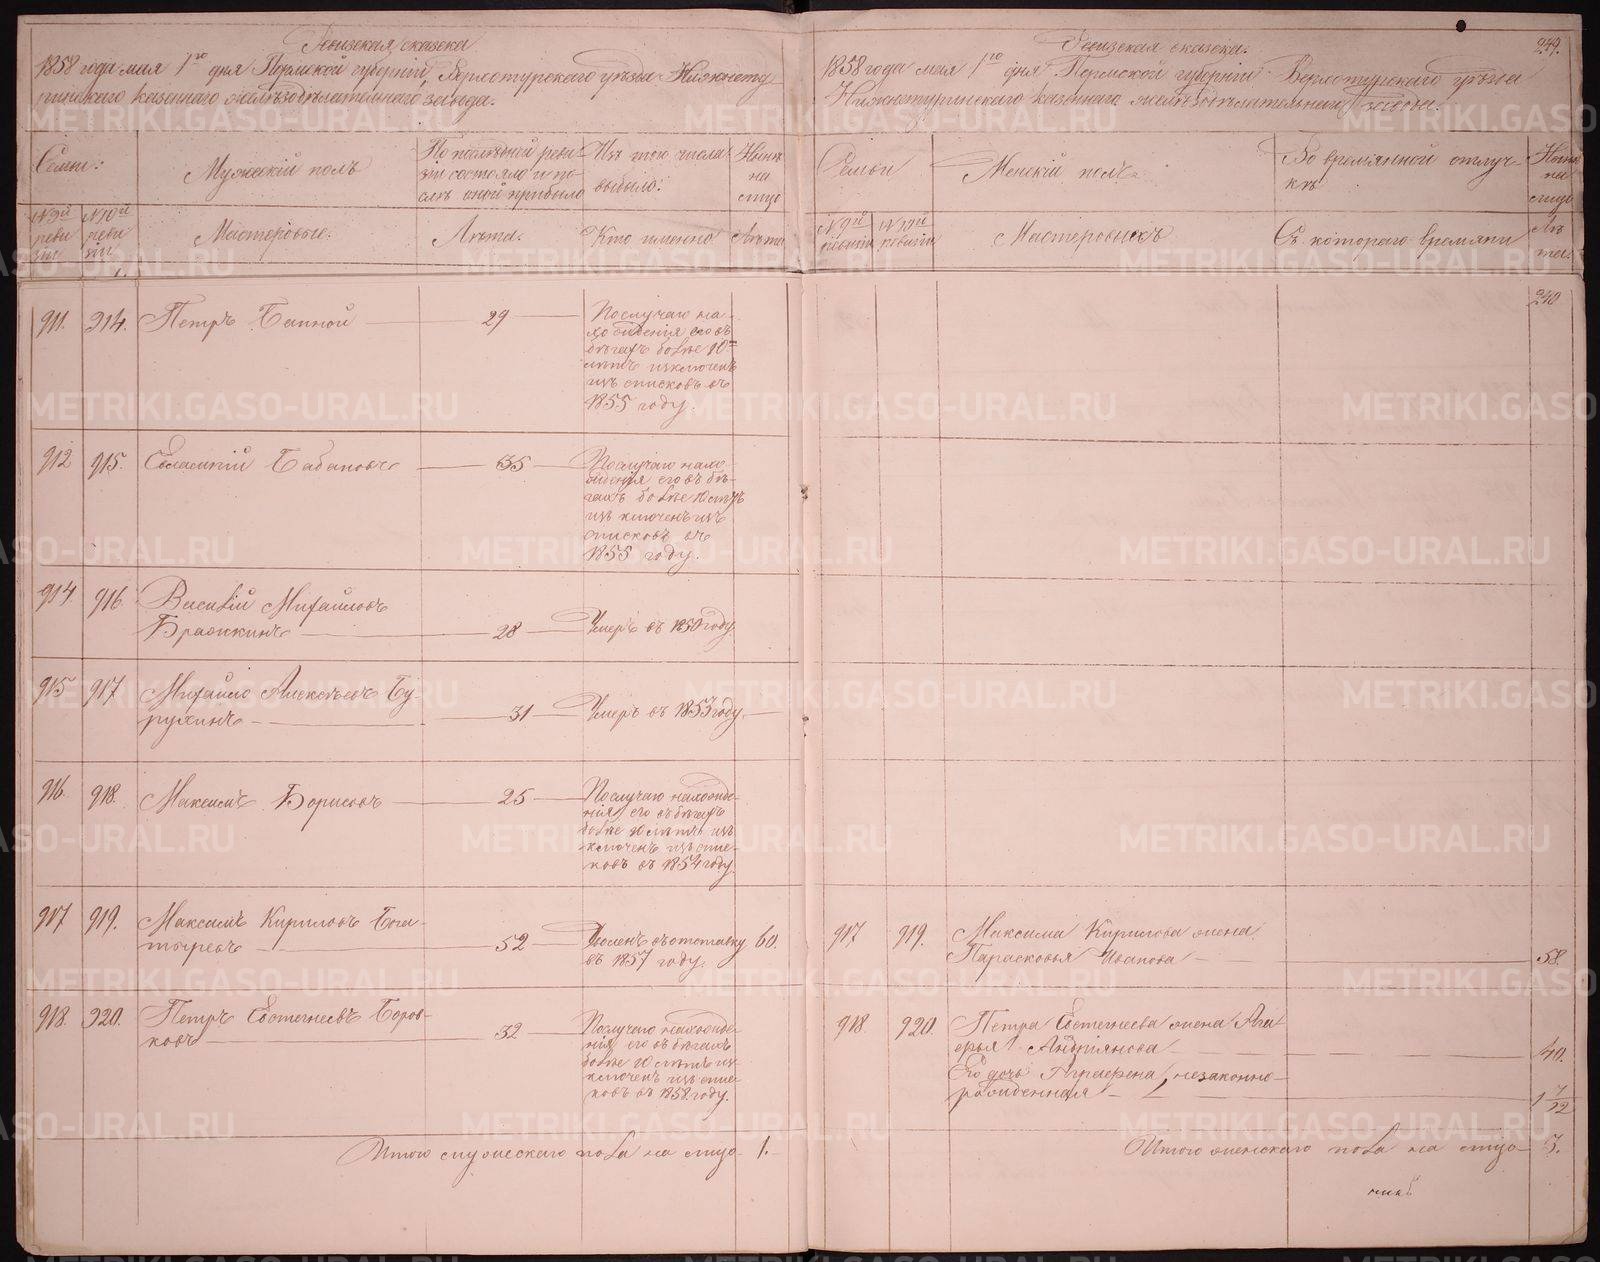 Ревизская сказка
1858 года мая 1го дня Пермской губернии, Верхотурского уѣзда Нижнету
ринскаго казеннаго желѣзодѣлательнаго завода.
Семьи:
Мужескій полъ
По послѣдней реви-
зіи состояло и по-
слѣ оной прибыло
Изъ того числа
выбыло:
Нынѣ
на
лицо
№ 9й
реви
зіи
№ 10й
реви
зіи
Мастеровые.
Лѣта.
Кто именно
Лѣта
911. 914. Петръ Банной 29
По случаю на-
хожденія его въ
бѣгахъ болѣе 10ти
лѣтъ изключенъ
изъ списковъ въ
1855 году.
912 915. Евлампій Бабановъ 35
По случаю нахо-
жденія его въ бѣ-
гахъ болѣе 10 лѣтъ
изключенъ изъ
списковъ въ
1855 году.
914. 916. Василій Михайловъ
Бражкинъ 28 Умеръ въ 1850 году.
915 917 Михайло Алексѣевъ Бу-
рухинъ 31 Умеръ въ 1853 году.
916. 918. Максимъ Борисовъ 25
По случаю нахожде-
нія его въ бѣгахъ
болѣе 10 лѣтъ из-
ключенъ изъ спис-
ковъ въ 1854 году.
917 919. Максимъ Кириловъ Бога-
тыревъ 52 Уволенъ въ отставку 60.
въ 1857 году.
918. 920. Петръ Евстегнеевъ Боров-
ковъ 32
По случаю нахожде-
нія его въ бѣгахъ
болѣе 10 лѣтъ из-
ключенъ изъ спис-
ковъ въ 1852 году.
Итого мужескаго пола на лицо 1.
Ревизская сказка.
249.
1858 года мая 1го дня Пермской губерніи Верхотурскаго уѣзда
Нижнетуринскаго казеннаго желѣзодѣлательнаго завода.
Семьи
Женскій полъ
Во времянной отлуч-
кѣ
Нынѣ
на
лицо
№ 9й
ревизіи
№ 10й
ревизіи
Мастеровыхъ
Съ котораго времяни
Лѣ
та.
240
917 919. Максима Кирилова жена
Парасковья Иванова 58.
918. 920. Петра Евстегнеева жена Ага
ѳья Андріянова 40.
Ея дочь Аграфена, незаконно-
рожденная 1 7/12
Итого женскаго пола на лицо 3.